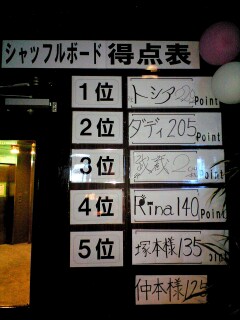 シャッフルボード 得点表
1位 トシア Point
2位 ダディ205 Point
3位
4位 Rina140 Point
5位 塚本様135 Point
仲本様125